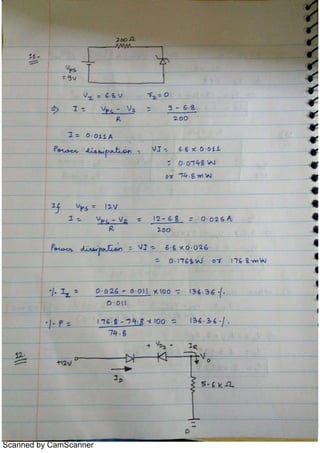 200 Ω
11.
V_PS
= 9V
V_Z = 6.8V r_z = 0
⇒ I = V_PS - V_Z / R = 9 - 6.8 / 200
I = 0.011A
Power dissipation = VI = 6.8 × 0.011
= 0.0748 W
or 74.8 mW
If V_PS = 12V
I = V_PS - V_Z / R = 12 - 6.8 / 200 = 0.026A
Power dissipation = VI = 6.8 × 0.026
= 0.1768W or 176.8mW
% I_Z = 0.026 - 0.011 / 0.011 × 100 = 136.36 %.
% P = 176.8 - 74.8 / 74.8 × 100 = 136.36 %.
12.
+ V_DZ - I_R
+12V V_o
I_D
5.6 K Ω
0
Scanned by CamScanner